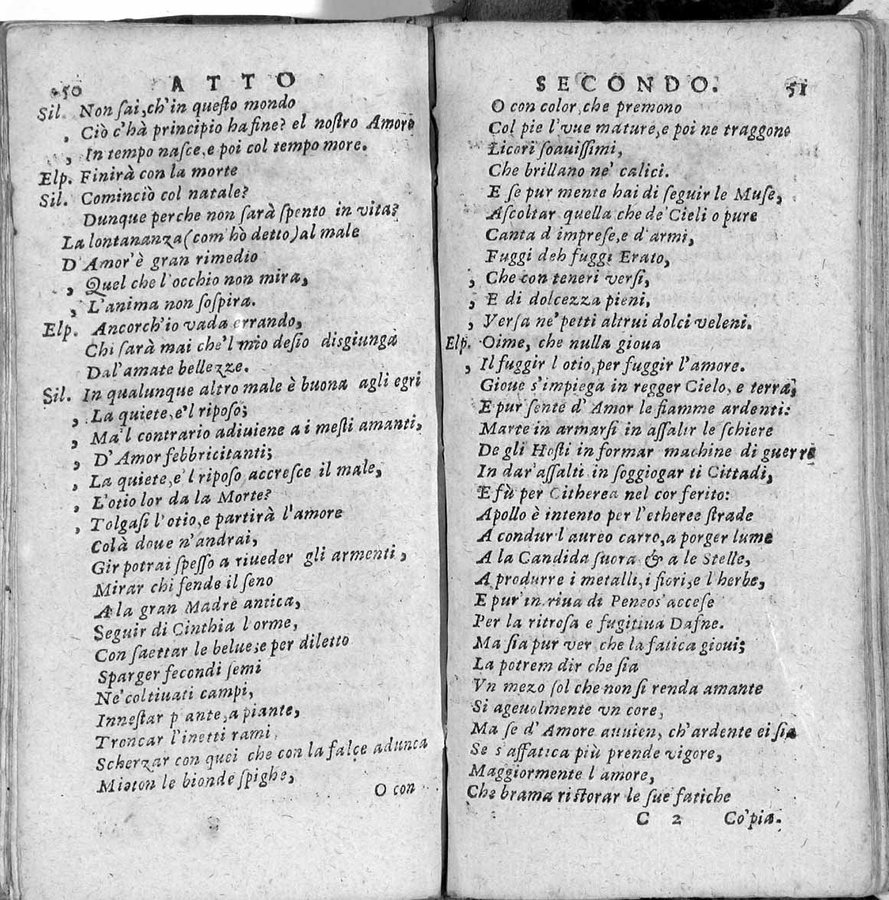 50 ATTO
Sil. Non ſai,ch'in queſto mondo
, Ciò c'hà principio ha fine? el noſtro Amore
, In tempo naſce,e poi col tempo more.
Elp. Finirà con la morte
Sil. Cominciò col natale?
Dunque perche non ſarà ſpento in vita?
La lontananza(com'hò detto)al male
D'Amor'è gran rimedio
, Quel che l'occhio non mira,
, L'anima non ſoſpira.
Elp. Ancorch'io vada errando,
Chi ſarà mai che'l mio deſio disgiunga
Dal'amate bellezze.
Sil. In qualunque altro male è buona agli egri
, La quiete,e'l ripoſo;
, Ma'l contrario adiuiene a i meſti amanti,
, D'Amor febbricitanti;
, La quiete,e'l ripoſo accreſce il male,
, L'otio lor da la Morte?
, Tolgaſi l'otio,e partirà l'amore
Colà doue n'andrai,
Gir potrai ſpeſſo a riueder gli armenti,
Mirar chi fende il ſeno
A la gran Madre antica,
Seguir di Cinthia l'orme,
Con ſaettar le belue;e per diletto
Sparger fecondi ſemi
Ne'coltiuati campi,
Inneſtar piante,a piante,
Troncar l'inetti rami,
Scherzar con quei che con la falce adunca
Mieton le bionde ſpighe,
O con
SECONDO. 51
O con color,che premono
Col pie l'vue mature,e poi ne traggono
Licori ſoauiſſimi,
Che brillano ne' calici.
E ſe pur mente hai di ſeguir le Muſe,
Aſcoltar quella che de'Cieli o pure
Canta d'impreſe,e d'armi,
Fuggi deh fuggi Erato,
, Che con teneri verſi,
, E di dolcezza pieni,
, Verſa ne'petti altrui dolci veleni.
Elp. Oime, che nulla gioua
, Il fuggir l'otio,per fuggir l'amore.
Gioue s'impiega in regger Cielo, e terra,
E pur ſente d'Amor le fiamme ardenti:
Marte in armarſi in aſſalir le ſchiere
De gli Hoſti in formar machine di guerra
In dar'aſſalti in ſoggiogar ti Cittadi,
E fù per Citherea nel cor ferito:
Apollo è intento per l'etheree ſtrade
A condur l'aureo carro,a porger lume
A la Candida ſuora & a le Stelle,
A produrre i metalli,i fiori,e l'herbe,
E pur'in riua di Peneo s'acceſe
Per la ritroſa e fugitiua Dafne.
Ma ſia pur ver che la fatica gioui;
La potrem dir che ſia
Vn mezo ſol che non ſi renda amante
Si ageuolmente vn core,
Ma ſe d'Amore auuien, ch'ardente ei ſia
Se s'affatica più prende vigore,
Maggiormente l'amore,
Che brama riſtorar le ſue fatiche
C 2 Co'pia.